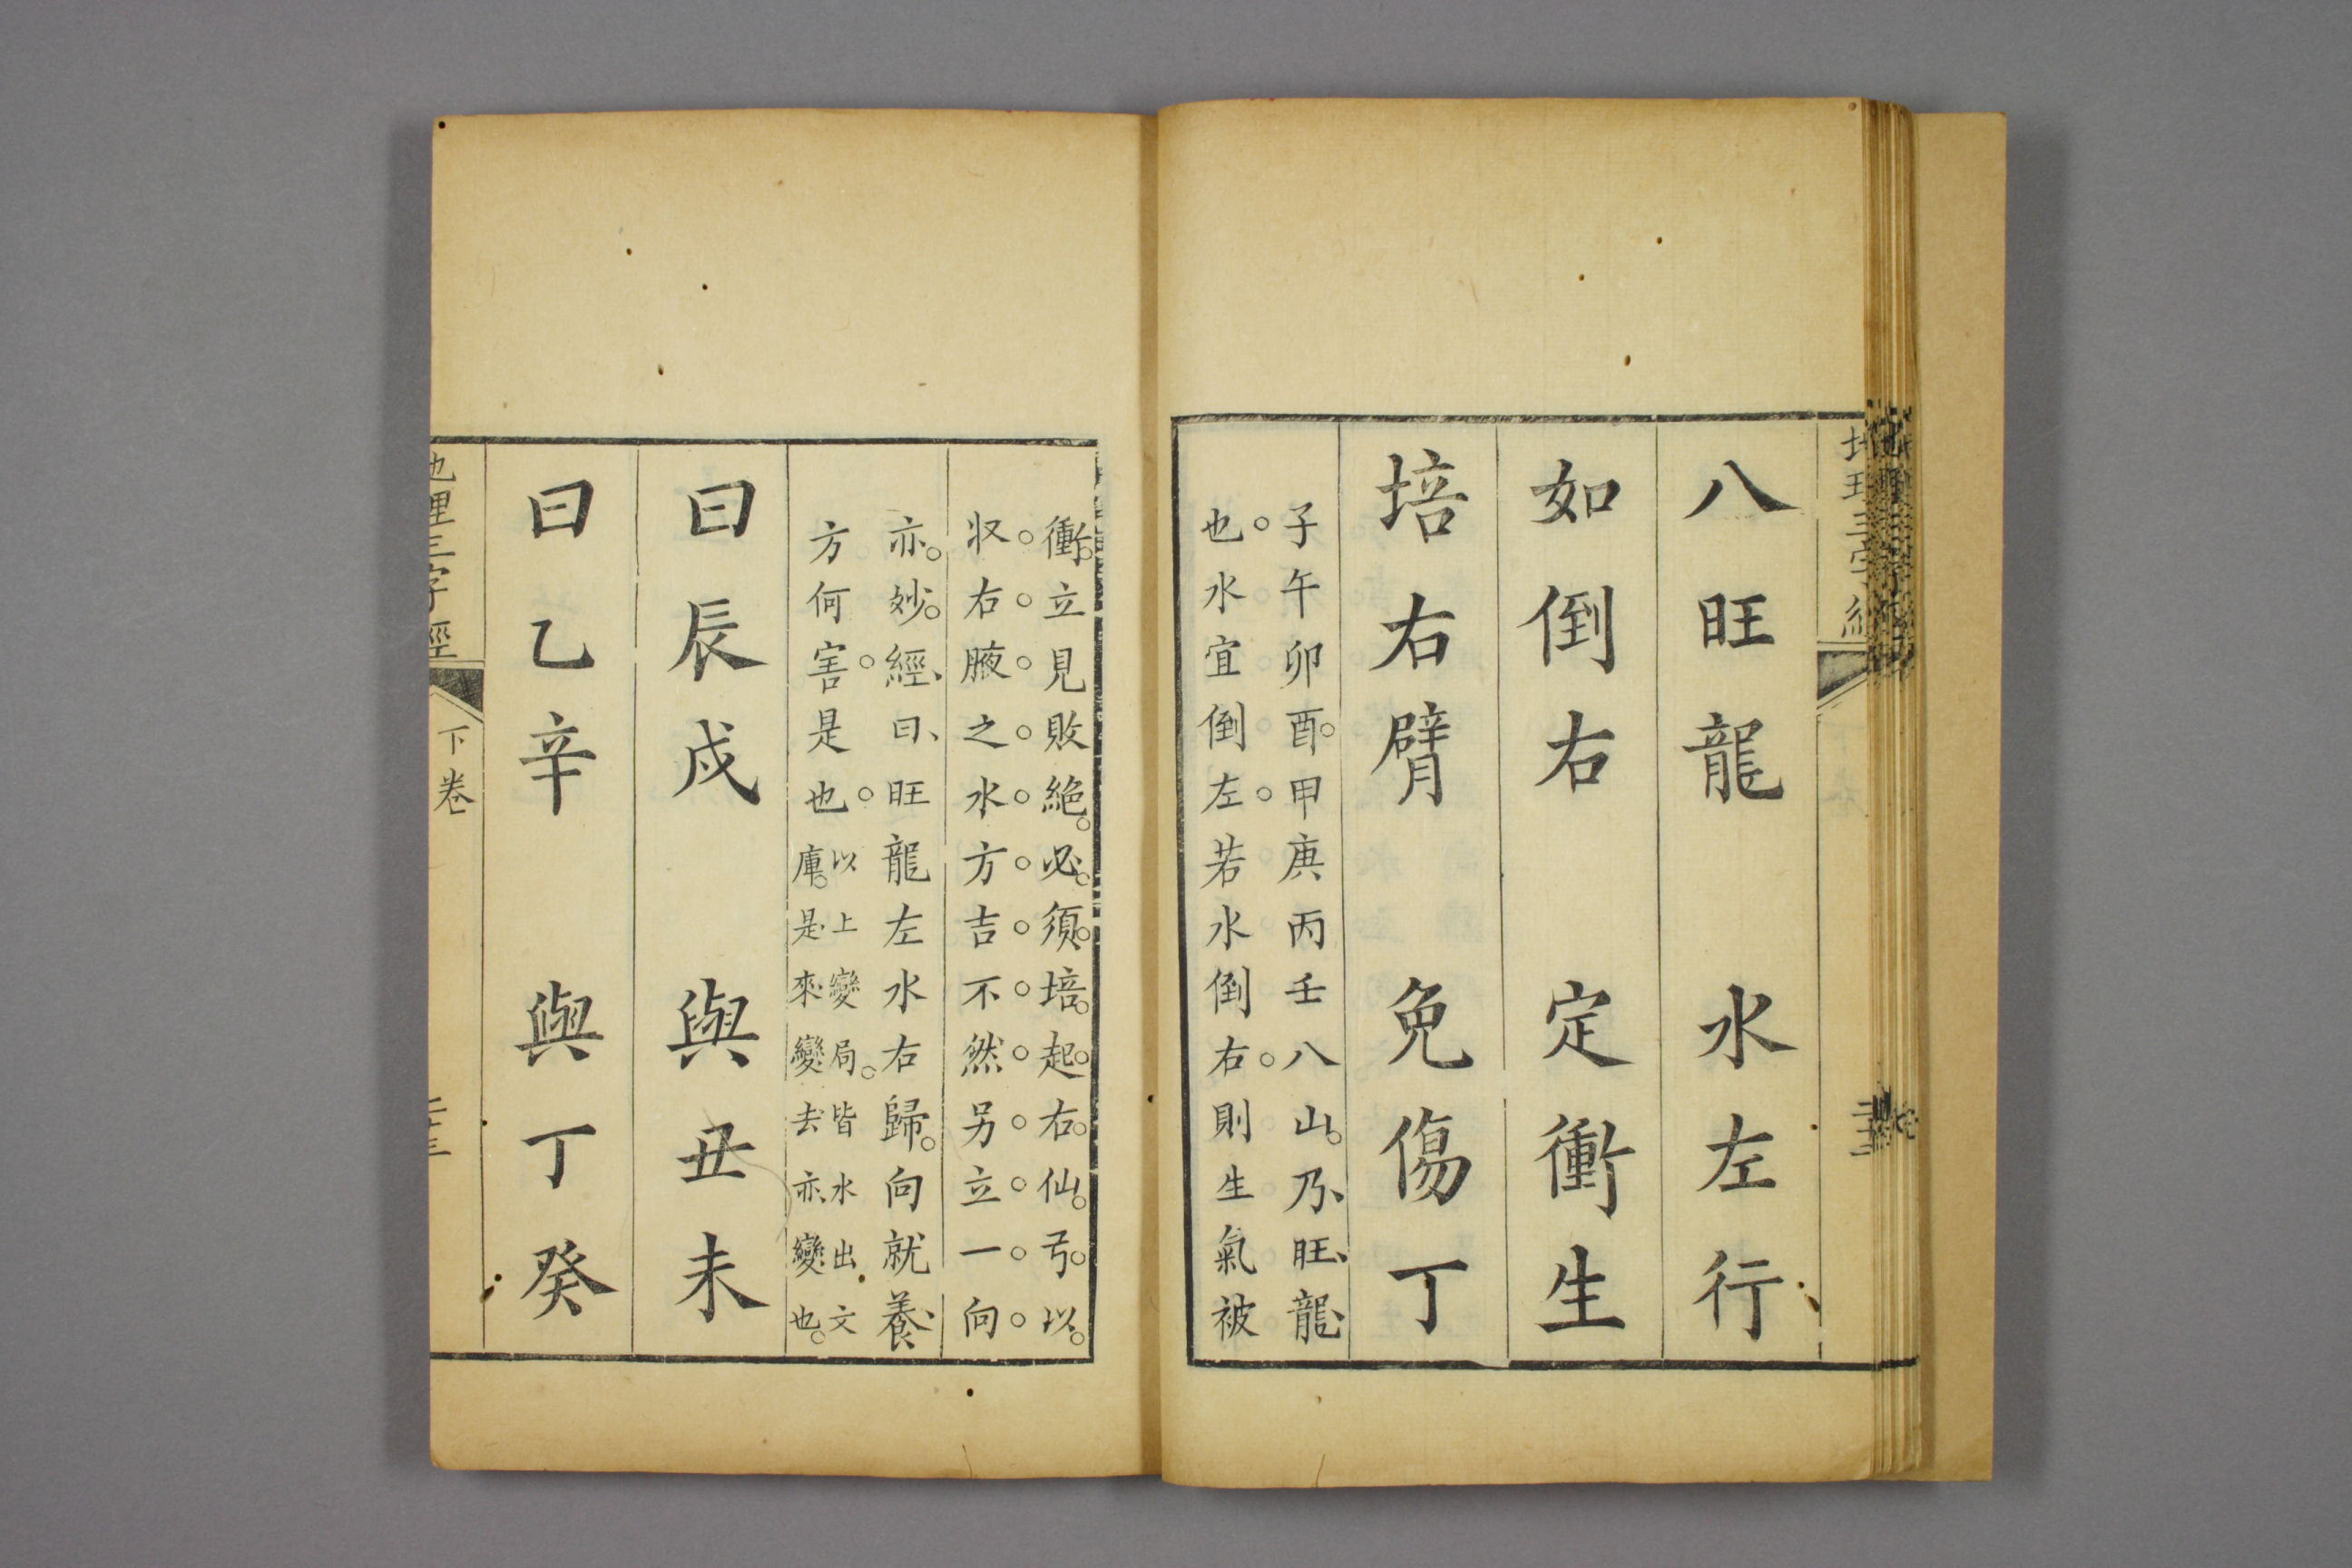 八旺龍　水左行
如倒右　定衝生
培右臂　免傷丁
子午卯酉。甲庚丙壬八山。乃、旺、龍、
也。水宜倒左。若水倒右。則生氣被
衝。立見敗絕。必。須。培。起。右。仙。弓。以。
收。右。腋。之。水。方。吉。不。然。另。立。一。向。
亦。妙。經、曰、旺龍左水右歸。向就養、
方何害。是也。
以上變局。皆水出文
庫。是、來、變去、亦、變也。
曰辰戌　與丑未
曰乙辛　與丁癸
地理三字經
下卷
二十三